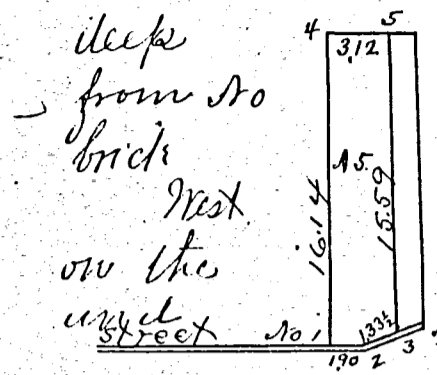 deep
from No
brick
West
on the
and
street No 1
4 5
3,12
A 5.
16.14
15.59
1,33½
1,90 2 3